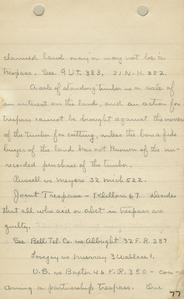 claimed land may or may not be a
trespass. See 9 Vt. 383, 21 N.H. 382.
A sale of standing timber is a sale of
an interest in the land, and an action for
trespass cannot be brought against the owner
of the timber for cutting, unless the bona fide
buyer of the land has not known of the un-
recorded purchase of the timber.
Russell vs Meyers 32 Mich 522.
Joint Trespass - 1 Hellow 67. decides
that all who aid or abet in trespass are
guilty.
See Bell Tel. Co. vs Albright 32 F.R. 287
vs Murray 3 Wallace 1.
U.S. vs Baxter 46 F.R. 350 - con-
cerning a partnership trespass. One
77